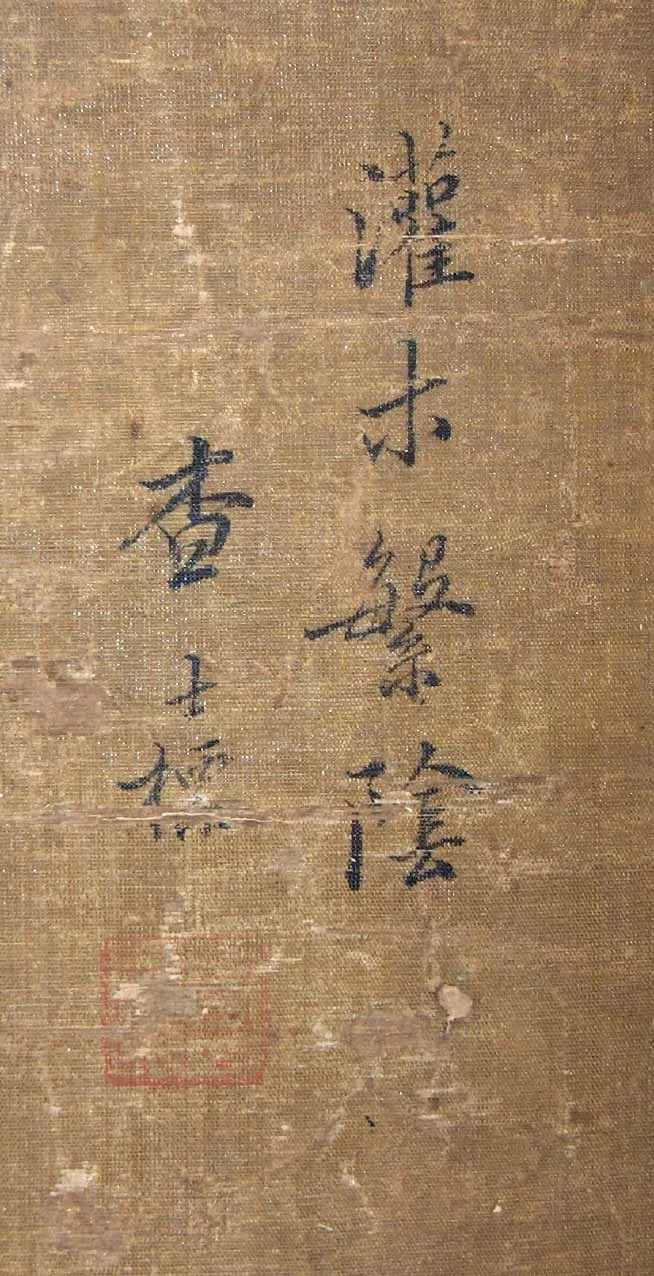 灌木繄陰
查士標